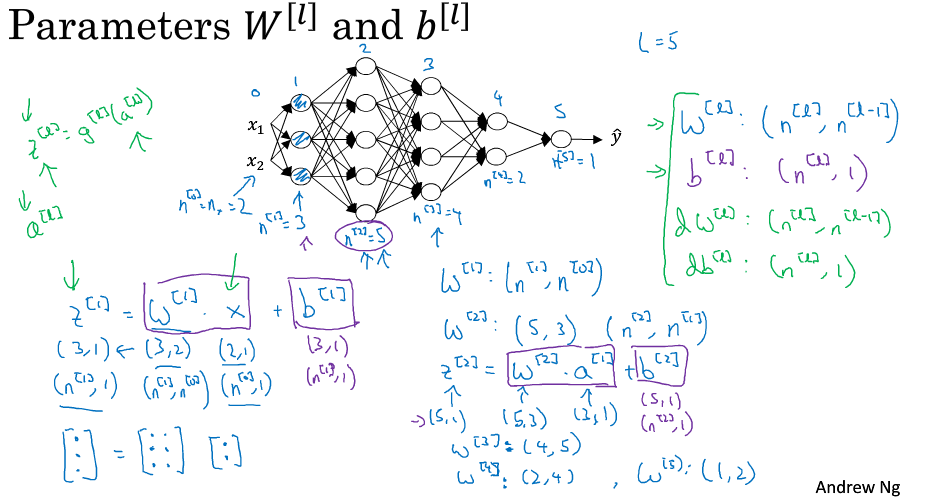 Parameters W^[l] and b^[l]
L = 5
0 1 2 3 4 5
x₁
x₂
ŷ
n^[0] = n_x = 2
n^[1] = 3
n^[2] = 5
n^[3] = 4
n^[4] = 2
n^[5] = 1
z^[l] = g^[l](a^[l])
a^[l]
→ W^[l] : (n^[l], n^[l-1])
→ b^[l] : (n^[l], 1)
dW^[l] : (n^[l], n^[l-1])
db^[l] : (n^[l], 1)
z^[1] = W^[1] · x + b^[1]
(3,1) ← (3,2) (2,1) (3,1)
(n^[1],1) (n^[1],n^[0]) (n^[0],1) (n^[1],1)
W^[1] : (n^[1], n^[0])
W^[2] : (5,3) (n^[2], n^[1])
z^[2] = W^[2] · a^[1] + b^[2]
→ (5,1) (5,3) (3,1) (5,1)
(n^[2],1)
W^[3] : (4,5)
W^[4] : (2,4) , W^[5] : (1,2)
Andrew Ng